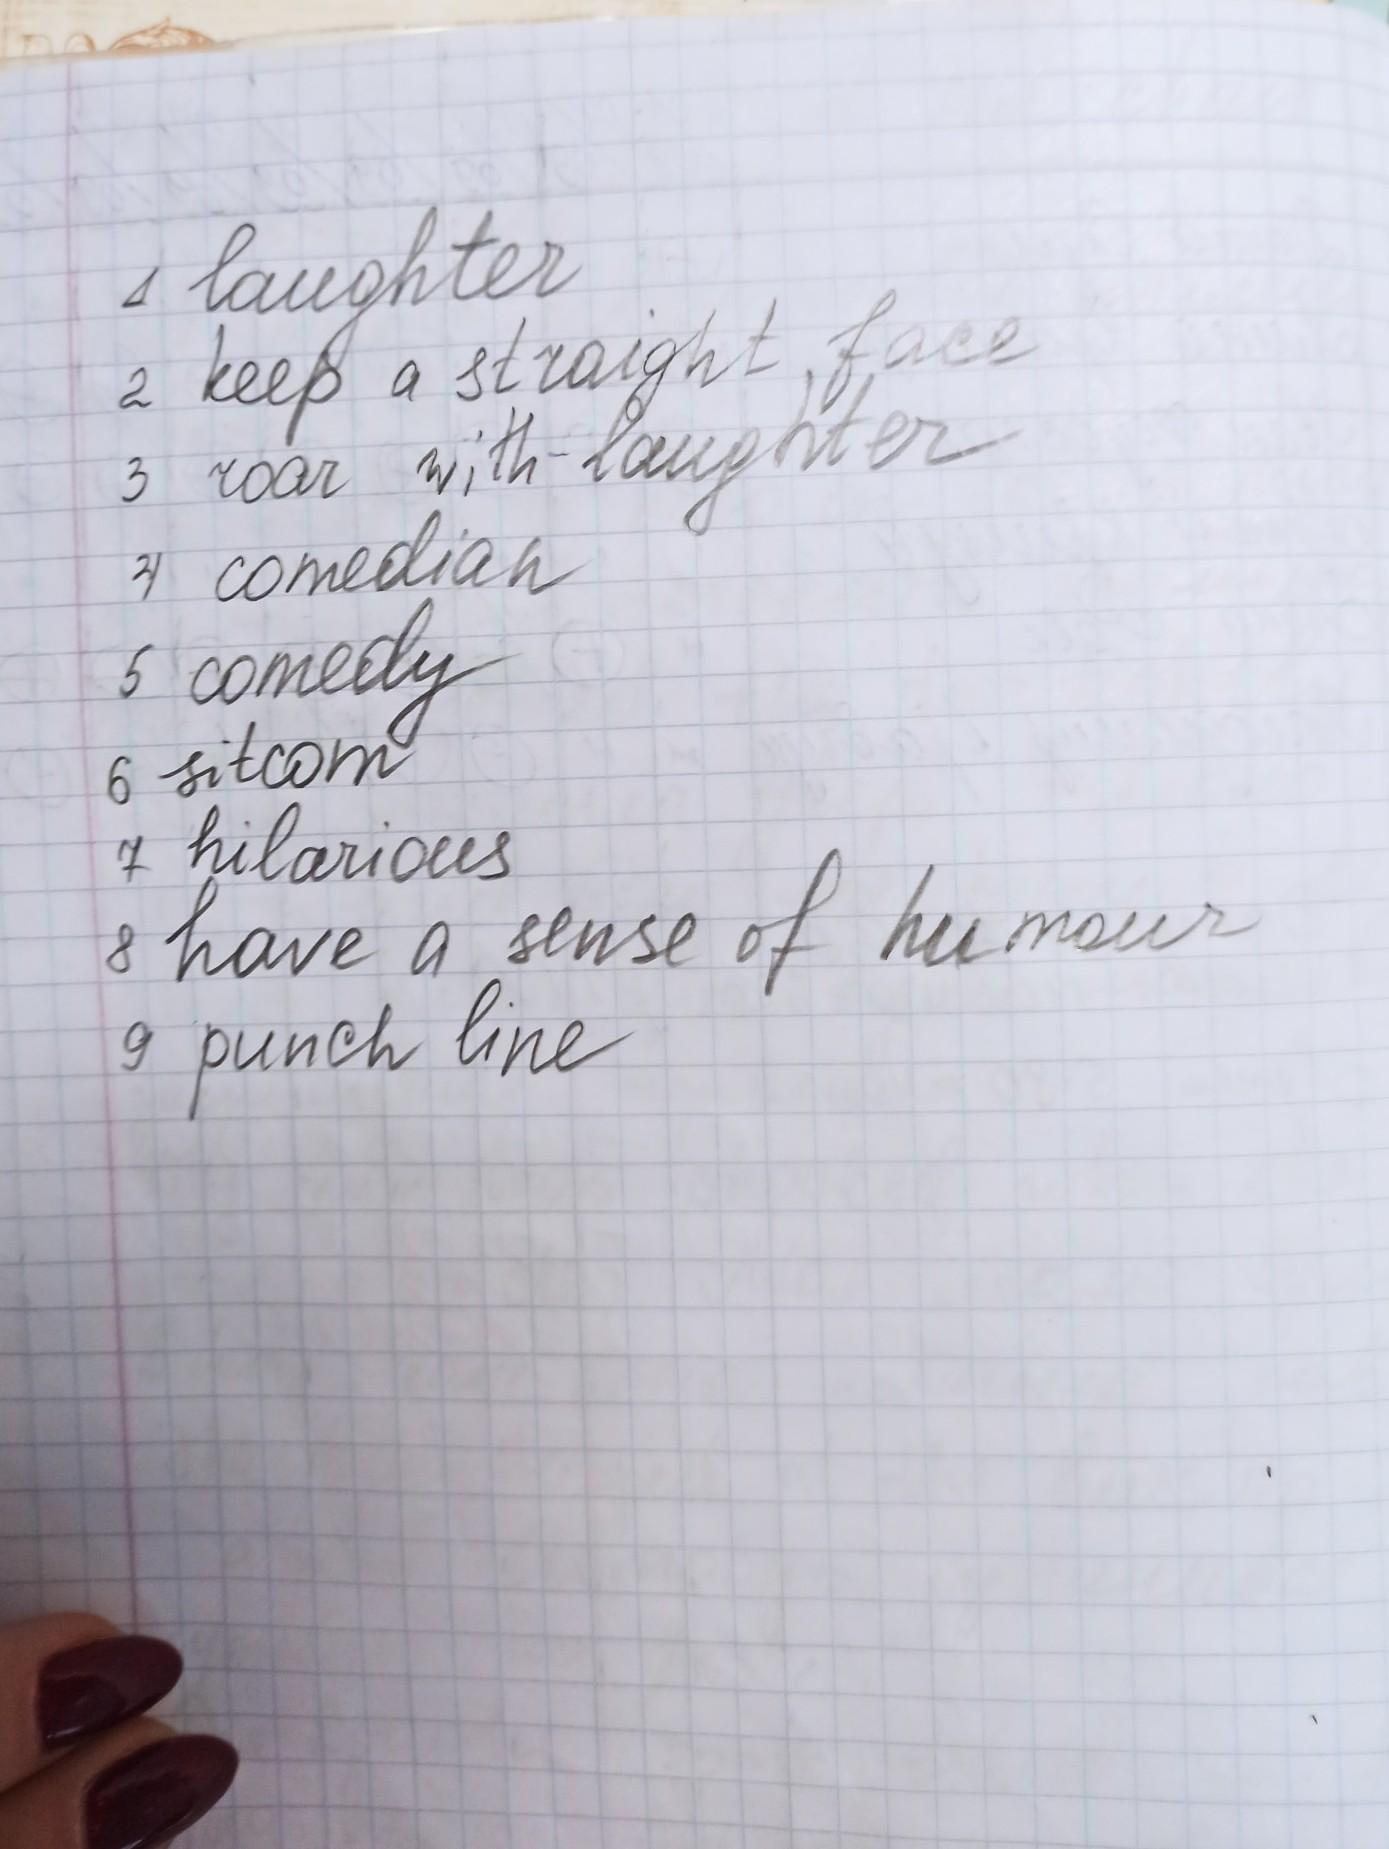 1 laughter
2 keep a straight face
3 roar with laughter
4 comedian
5 comedy
6 sitcom
7 hilarious
8 have a sense of humour
9 punch line